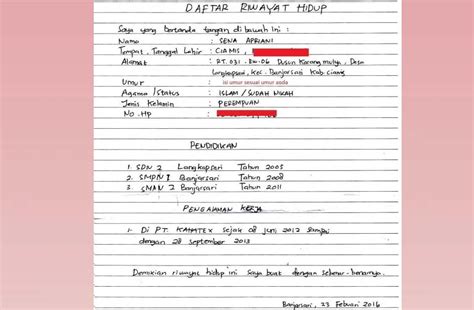 DAFTAR RIWAYAT HIDUP
Saya yang bertanda tangan di bawah ini :
Nama : SENA APRIANI
Tempat, Tanggal Lahir : CIAMIS,
Alamat : RT.031 . RW.06 Dusun Karang mulya, Desa
Langkapsari, Kec. Banjarsari Kab Ciamis
Umur : isi umur sesuai umur anda
Agama / Status : ISLAM / SUDAH NIKAH
Jenis Kelamin : PEREMPUAN
No. HP :
PENDIDIKAN
1. SDN 2 Langkapsari Tahun 2005
2. SMPN 1 Banjarsari Tahun 2008
3. SMAN 2 Banjarsari Tahun 2011
PENGALAMAN KERJA
1. Di PT. KAHATEX Sejak 08 Juni 2012 Sampai
dengan 28 September 2013
Demikian riwayat hidup ini saya buat dengan sebenar-benarnya.
Banjarsari, 23 Febuari 2016